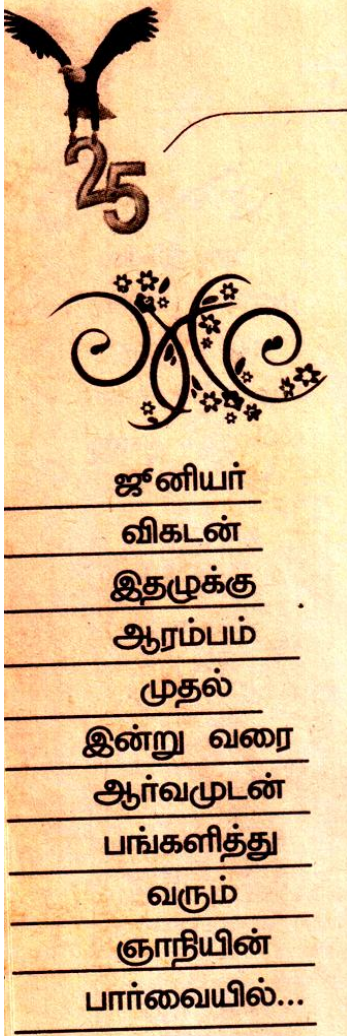 25
ஜூனியர்
விகடன்
இதழுக்கு
ஆரம்பம்
முதல்
இன்று வரை
ஆர்வமுடன்
பங்களித்து
வரும்
ஞாநியின்
பார்வையில்...